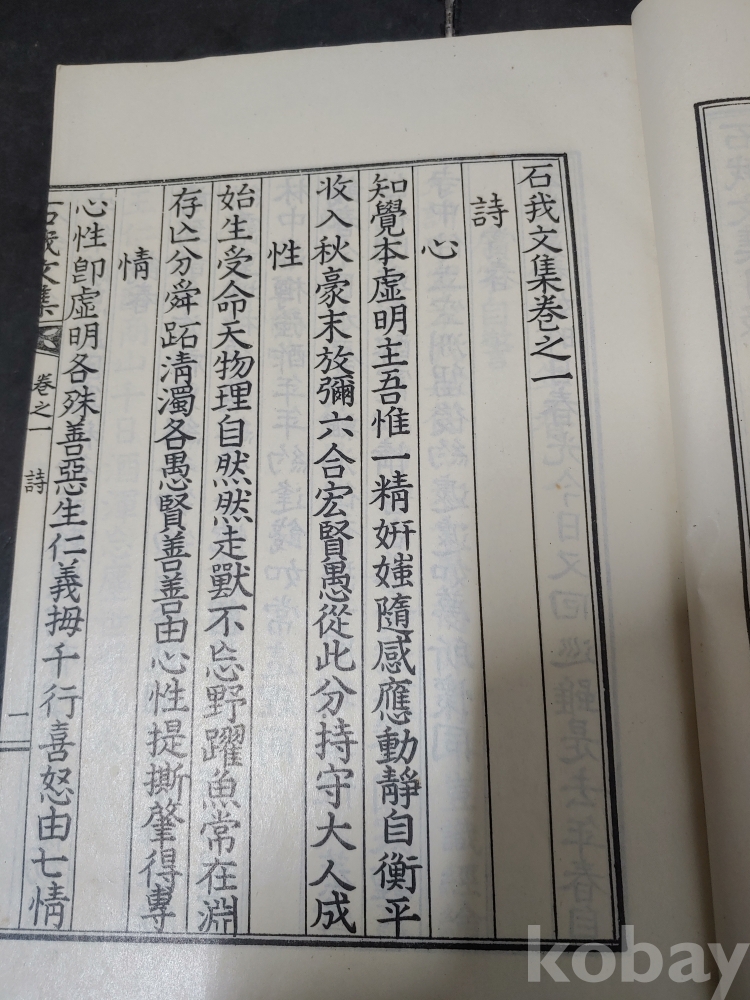 石我文集卷之一
詩
心
知覺本虛明主吾惟一精姸媸隨感應動靜自衡平
收入秋豪末放彌六合宏賢愚從此分持守大人成
性
始生受命天物理自然然走獸不忘野躍魚常在淵
存亡分舜跖淸濁各愚賢善善由心性提撕肇得專
情
心性卽虛明各殊善惡生仁義拇千行喜怒由七情
石我文集 卷之一 詩 一
kobay